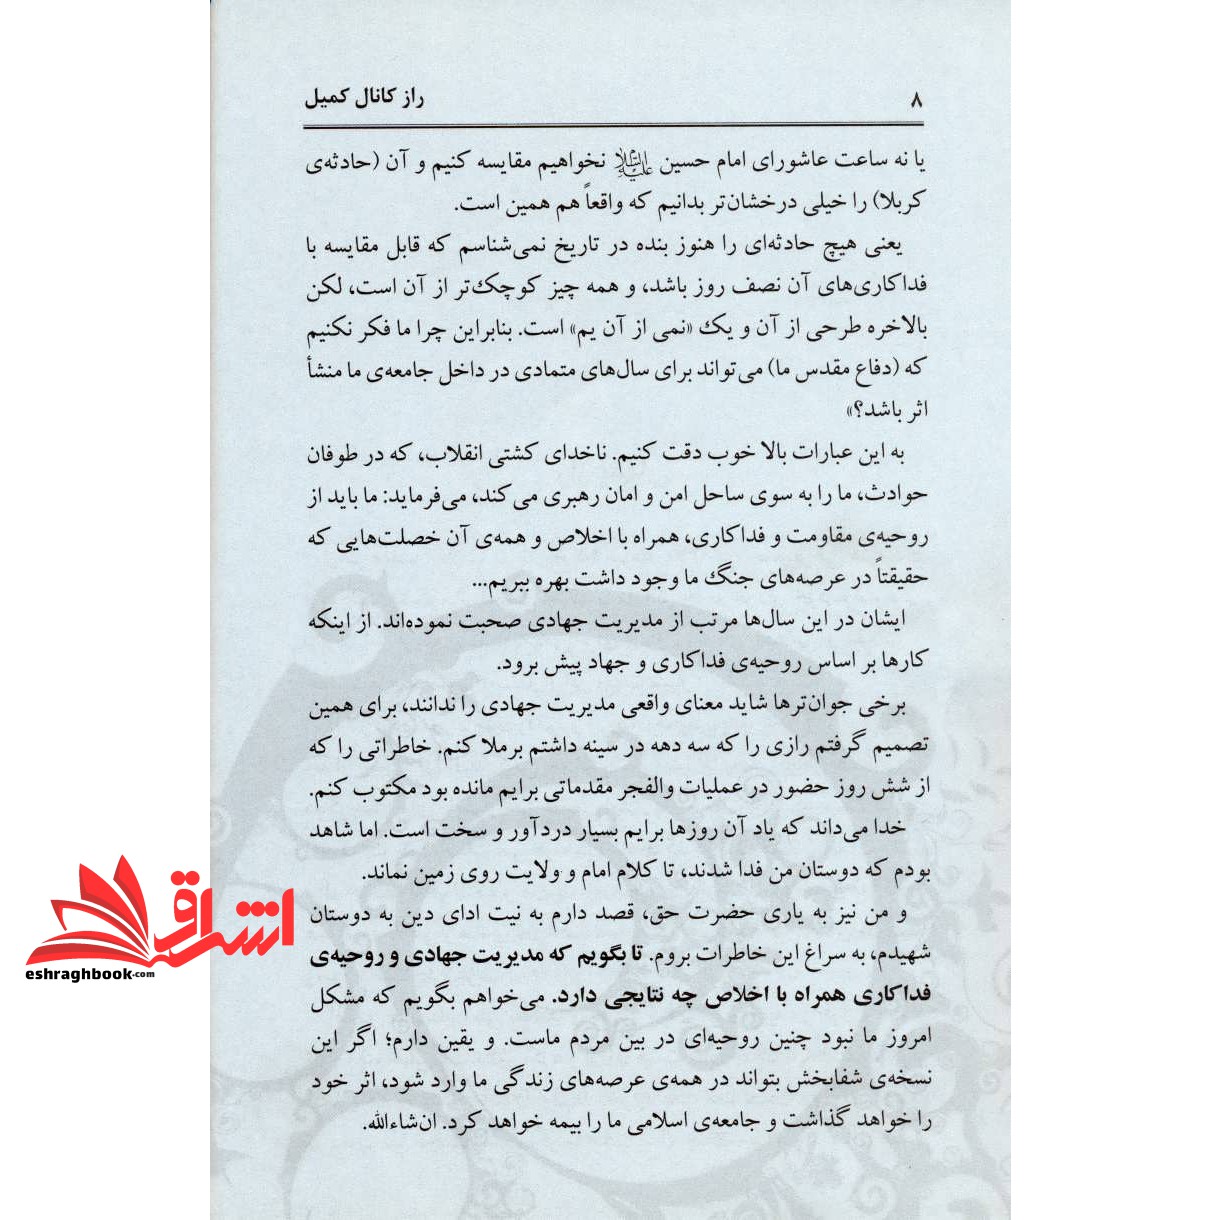 ۸
راز کانال کمیل
یا نه ساعت عاشورای امام حسین علیه‌السلام نخواهیم مقایسه کنیم و آن (حادثه‌ی
کربلا) را خیلی درخشان‌تر بدانیم که واقعاً هم همین است.
یعنی هیچ حادثه‌ای را هنوز بنده در تاریخ نمی‌شناسم که قابل مقایسه با
فداکاری‌های آن نصف روز باشد، و همه چیز کوچک‌تر از آن است، لکن
بالاخره طرحی از آن و یک «نمی از آن یم» است. بنابراین چرا ما فکر نکنیم
که (دفاع مقدس ما) می‌تواند برای سال‌های متمادی در داخل جامعه‌ی ما منشأ
اثر باشد؟»
به این عبارات بالا خوب دقت کنیم. ناخدای کشتی انقلاب، که در طوفان
حوادث، ما را به سوی ساحل امن و امان رهبری می‌کند، می‌فرماید: ما باید از
روحیه‌ی مقاومت و فداکاری، همراه با اخلاص و همه‌ی آن خصلت‌هایی که
حقیقتاً در عرصه‌های جنگ ما وجود داشت بهره ببریم...
ایشان در این سال‌ها مرتب از مدیریت جهادی صحبت نموده‌اند. از اینکه
کارها بر اساس روحیه‌ی فداکاری و جهاد پیش برود.
برخی جوان‌ترها شاید معنای واقعی مدیریت جهادی را ندانند، برای همین
تصمیم گرفتم رازی را که سه دهه در سینه داشتم برملا کنم. خاطراتی را که
از شش روز حضور در عملیات والفجر مقدماتی برایم مانده بود مکتوب کنم.
خدا می‌داند که یاد آن روزها برایم بسیار دردآور و سخت است. اما شاهد
بودم که دوستان من فدا شدند، تا کلام امام و ولایت روی زمین نماند.
و من نیز به یاری حضرت حق، قصد دارم به نیت ادای دین به دوستان
شهیدم، به سراغ این خاطرات بروم. تا بگویم که مدیریت جهادی و روحیه‌ی
فداکاری همراه با اخلاص چه نتایجی دارد. می‌خواهم بگویم که مشکل
امروز ما نبود چنین روحیه‌ای در بین مردم ماست. و یقین دارم؛ اگر این
نسخه‌ی شفابخش بتواند در همه‌ی عرصه‌های زندگی ما وارد شود، اثر خود
را خواهد گذاشت و جامعه‌ی اسلامی ما را بیمه خواهد کرد. ان‌شاءالله.
اشراق
eshraghbook.com